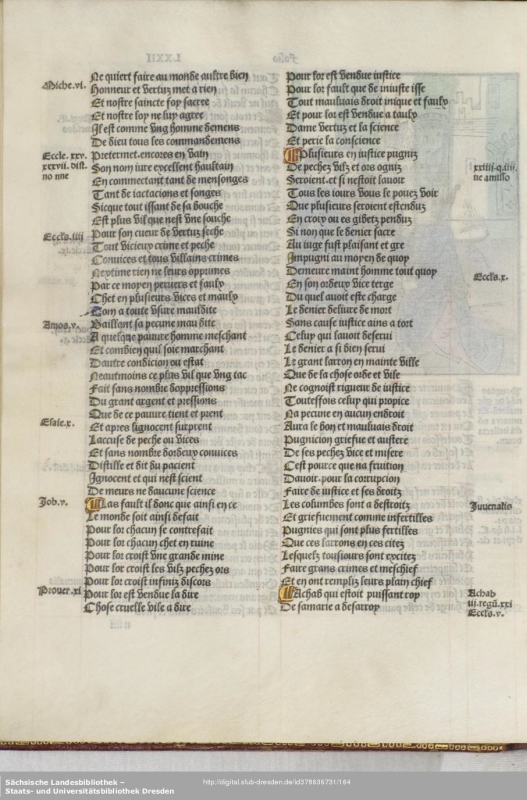 Ne quiert faire au monde aultre bien
Miche.vi.
Honneur et vertuz met a rien
Et nostre saincte foy sacree
Et nostre loy ne luy agree
Il est comme vng homme demens
De dieu tous les commandemens
Eccle. xxv.
Pretermet.encores en vain
xxxvii. dist.
no nne
Son nom iure excellent haultain
En commectant tant de mensonges
Tant de iactacions et songes
Sicque tout issant de sa bouche
Est plus vil que nest vne souche
Eccls.iiii
Pour son cueur de vertuz seche
Tout vicieux crime et peche
Conuices et tous villains crimes
Neptime rien ne leurs opprimes
Par ce moyen peruers et faulx
Chet en plusieurs vices et maulx
Com a toute vsure mauldite
Amos.v.
Baillant sa pecune mau dite
A quelque pauure homme meschant
Et combien quil soie marchant
Dautre condicion ou estat
Neautmoins ce plus vil que vng iac
Fait sans nombre doppressions
Du grant argent et pressions
Que de ce pauure tient et prent
Esaie.x.
Et apres lignocent surprent
Laccuse de peche ou vices
Et sans nombre dordeux conuices
Distille et dit du pacient
Ignocent et qui nest scient
De meurs ne daucune science
Job.v.
Las fault il donc que ainsi en ce
Le monde soit ainsi defait
Pour lor chacun se contrefait
Pour lor chacun chet en ruine
Pour lor croist vne grande mine
Pour lor croist les vilz pechez ors
Pour lor croist infiniz discors
Prouer.xi
Pour lor est vendue la dire
Chose cruelle vile a dire
Folio LXXII
Pour lor est vendue iustice
Pour lor fault que de iniuste isse
Tout mauluais droit inique et faulx
Et pour lor est vendue a taulx
Dame vertuz et la science
Et perie la conscience
Plusieurs en iustice pugniz
xxiiii.q.iiii.
ne amisso
De pechez vilz et ors ogniz
Seroient.et si nestoit lauoir
Tous les iours vous le pouez voir
Que plusieurs seroient estenduz
En croix ou es gibetz penduz
Si non que le denier sacre
Au iuge fust plaisant et gre
Impugni au moyen de quoy
Demeure maint homme tout quoy
Eccls.x.
En son ordeux vice terge
Du quel auoit este charge
Le denier deliure de mort
Sans cause iustice ains a tort
Celuy qui lauoit deserui
Le denier a si bien serui
Le grant larron en mainte ville
Que de sa chose orde et vile
Ne cognoist rigueur de iustice
Toutessois celuy qui propice
Na pecune en aucun endroit
Aura se bon et mauluais droit
Pugnicion griefue et austere
De ses pechez vice et misere
Cest pource que na fruition
Dauoir.pour la corrupcion
Faire de iustice et ses droitz
Les columbes sont a destroitz
Juuenalis
Et griefuement comme infertilles
Pugnies qui sont plus fertilles
Que ces larrons en ces citez
Lesquelz tousiours sont excitez
Faire grans crimes et meschief
Et en ont rempliz leurs plain chief
Achab qui estoit puissant roy
Achab
iii.regū.xxi
De samarie a desarroy
Eccls.v.
Sächsische Landesbibliothek –
Staats- und Universitätsbibliothek Dresden
http://digital.slub-dresden.de/id378636731/164